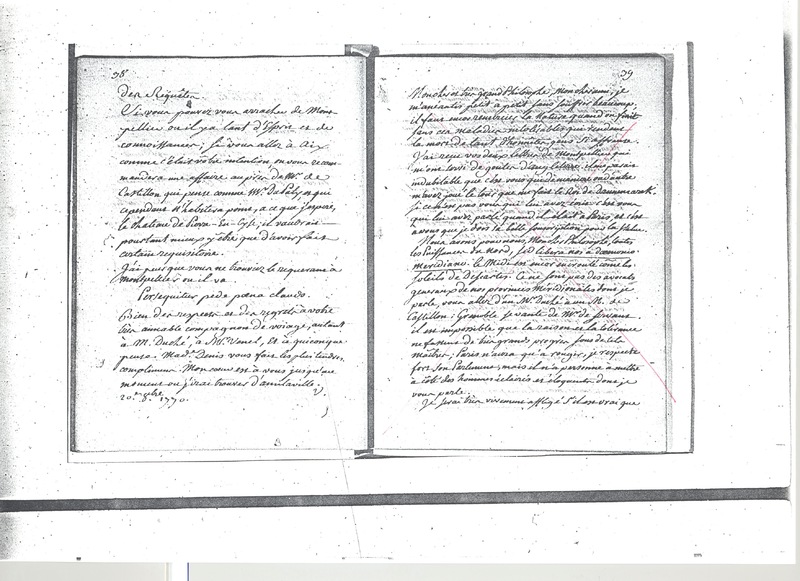 98
Des Requêtes.
Si vous pouvez vous arracher de Mont-
pellier ou il y a tant d'Esprit et de
connoissance; si vous allez à Aix
comme c'etait votre intention, on vous recom-
mandera une affaire auprès de Mr. de
Castillon qui pense comme Mr. Duché et qui
cependant n'habitera point, a ce que j'espere,
le chateau de Pierre-En-Cise; il vaudroit
pourtant mieux y être que d'avoir fait
certain requisitoire.
J'ai peur que vous ne trouviez le requerant à
Montpellier ou il va
Persequitur pede pœna claudo.
Bien des respects et des regrets à votre
très aimable compagnon de voiage, autant
à M. Duché, à M. Venel, Et à quiconque
pense. Made. Denis vous fait les plus tendres
complimens. Mon cœur est à vous jusqu'au
moment ou j'irai trouver Damilaville.
20. 8. 1770.
99
Mon cher et très grand Philosophe, mon cher ami, je
m'anéantis petit à petit sans souffrir beaucoup,
il faut encor remercier la Nature quand on finit
sans ces maladies intolérables qui rendent
la mort de tant d'honnêtes gens si affreuse.
J'ai reçu vos deux lettres de Montpellier qui
m'ont servi de gouter Il me parait
indubitable que c'est vous
m'avez joué le tour que me fait le Roi de Dannemark.
je certes pas vous qui lui avez écrit c'est vous
qui lui avez parlé quand il était à Paris, et c'est
a vous que je dois sa belle souscription pour la statue.
Nous avons pour nous, Mon cher Philosophe, toutes
les Puissances du Nord, sed libera nos à dœmonio
meridiano. Le Midi est encor encrouté comme les
soleils de Descartes. Ce ne sont pas des avocats
generaux de nos provinces Méridionales dont je
parle, vous allez d'un Mr. Duché à un M. de
Castillon; Grenoble se vante de Mr. de Servant.
il est impossible que la raison et la tolérance
ne fassent de très grands progrès sous de tels
maîtres; Paris n'aura qu'à rougir, je respecte
fort son Parlement, mais il n'a personne à mettre
à côté des hommes éclairés et éloquents dont je
vous parle.
Je serai très vivement affligé s'il est vrai que